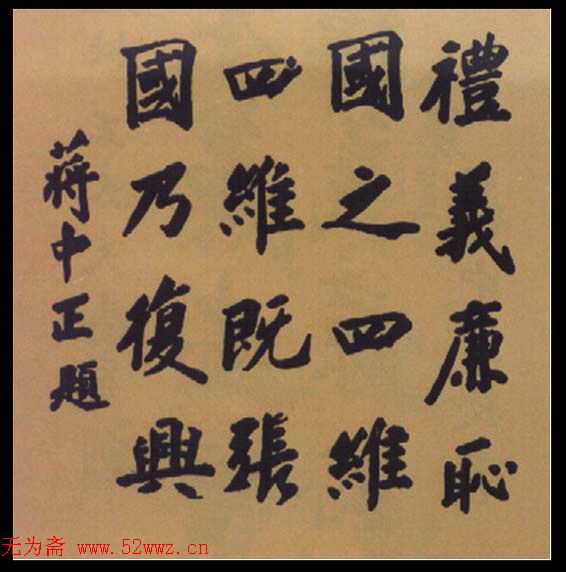 禮義廉恥
國之四維
四維既張
國乃復興
蔣中正題
无为斋 www.52wwz.cn